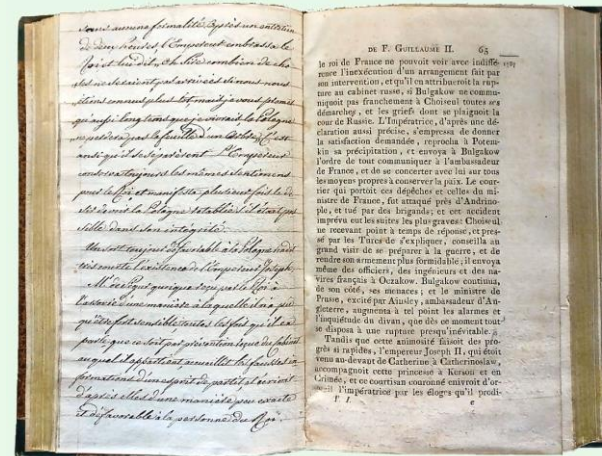 sans aucune formalité. Après un entretien
de deux heures, l'Empereur embrassa le
Roi et lui dit, Ah Sire combien de cho
ses ne seraient pas arrivées si nous nous
étions connus plus tot, mais je vous promets
qu'aussi longtems que je vivrai la Pologne
ne perdra pas la feuille d'un arbre. C'est
ainsi qu'ils se séparèrent. L'Empereur
conserva toujours les mêmes sentimens
pour le Roi et manifesta plusieurs fois le dé
sir de voir la Pologne rétablie s'il était pos
sible dans son intégrité.
Un sort toujours défavorable à la Pologne
l'existence de l'Empereur Joseph.
Mr de Ségur quoique reçu par le Roi à
d'une manière à laquelle il n'a pu
qu'être fort sensible, toutes les fois qu'il en
parle, que ce soit par prévention
auquel il appartient accueillit les fausses in
formations d'un esprit de parti et écrivit
d'après elles d'une manière peu exacte
et défavorable à la personne du Roi.
DE F. GUILLAUME II. 65
le roi de France ne pouvoit voir avec indiffé- 1787
rence l'inexécution d'un arrangement fait par
son intervention, et qu'il en attribueroit la rup-
ture au cabinet russe, si Bulgakow ne commu-
niquoit pas franchement à Choiseul toutes ses
démarches, et les griefs dont se plaignoit la
cour de Russie. L'Impératrice, d'après une dé-
claration aussi précise, s'empressa de donner
la satisfaction demandée, reprocha à Potem-
kin sa précipitation, et envoya à Bulgakow
l'ordre de tout communiquer à l'ambassadeur
de France, et de se concerter avec lui sur tous
les moyens propres à conserver la paix. Le cour-
rier qui portoit ces dépêches et celles du mi-
nistre de France, fut attaqué près d'Andrino-
ple, et tué par des brigands; et cet accident
imprévu eut les suites les plus graves: Choiseul
ne recevant point à temps de réponse, et pres-
sé par les Turcs de s'expliquer, conseilla au
grand visir de se préparer à la guerre, et de
rendre son armement plus formidable; il envoya
même des officiers, des ingénieurs et des na-
vires français à Oczakow. Bulgakow continua,
de son côté, ses menaces; et le ministre de
Prusse, excité par Ainsley, ambassadeur d'An-
gleterre, augmenta à tel point les alarmes et
l'inquiétude du divan, que dès ce moment tout
se disposa à une rupture presqu'inévitable.
Tandis que cette animosité faisoit des pro-
grès si rapides, l'empereur Joseph II, qui étoit
venu au-devant de Catherine à Catherinoslaw,
accompagnoit cette princesse à Kerson et en
Crimée, et ce courtisan couronné enivroit d'or-
gueil l'impératrice par les éloges qu'il prodi-
T. I. e